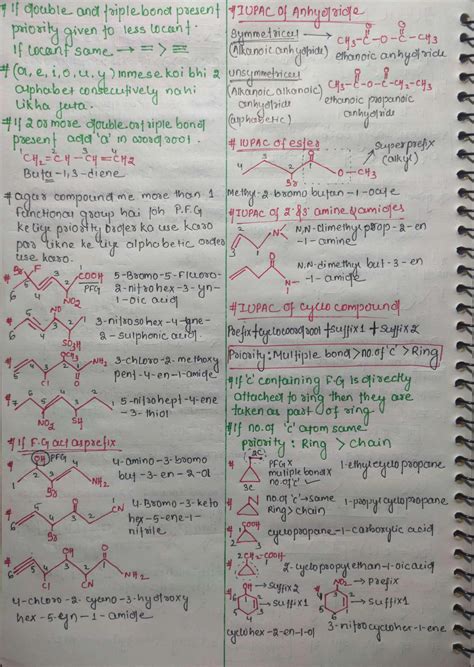 # If double and triple bond present
priority given to less locant.
If locant same → = > ≡
# (a, e, i, o, u, y) inmese koi bhi 2
alphabet consecutively nahi
likha juta.
# If 2 or more double or triple bond
present add 'a' in word root.
1 2 3 4
CH2=CH-CH=CH2
Buta-1,3-diene
# agar compound me more than 1
functional group hai toh P.F.G
ke liye priority order ko use karo
par likne ke liye alphabetic order
use karo.
# Br F COOH PFG NO2
5-Bromo-5-Fluoro-
2-nitrohex-3-yn-
1-oic acid
# NO SO3H
3-nitrosohex-4-yne-
2-sulphonic acid.
# OCH3 O NH2 Cl
3-chloro-2-methoxy
pent-4-en-1-amide
# NO2 SH
5-nitrohept-4-ene
-3-thiol
# If F.G act as prefix
# OH PFG NH2 Br
4-amino-3-bromo
but-3-en-2-ol
# O CN Br
4-Bromo-3-keto
hex-5-ene-1-
nitrile
# OH O NH2 Cl CN
4-chloro-2-cyano-3-hydroxy
hex-5-yn-1-amide
# IUPAC of Anhydride
Symmetrical
(Alkanoic anhydride)
CH3-C-O-C-CH3
ethanoic anhydride
unsymmetrical
(Alkanoic alkanoic)
anhydride
(alphabetic)
CH3-C-O-C-CH2-CH3
ethanoic propanoic
anhydride
# IUPAC of ester
superprefix
(alkyl)
Br O-CH3
Methyl-2-bromo butan-1-oate
# IUPAC of 2° & 3° amine & amides
N,N-dimethyl prop-2-en
-1-amine
N,N-dimethyl but-3-en
-1-amide
# IUPAC of cyclo compound
Prefix+cyclo word root+suffix1+suffix2
Priority: Multiple bond > no. of 'c' > Ring
# If 'c' containing F.G is directly
attached to ring then they are
taken as part of ring.
# If no. of 'c' atom same
priority: Ring > chain
# (2C) 3C
PFG X
multiple bond X
no. of 'c' ✓
1-ethyl cyclopropane
# no. of 'c' → same
Ring > chain
1-propyl cyclopropane
# COOH
cyclopropane-1-carboxylic acid
# 2 1
CH2-COOH
2-cyclopropyl ethan-1-oic acid
# OH → suffix2
→ suffix1
cyclohex-2-en-1-ol
# NO2 → Prefix
→ suffix1
3-nitrocyclohex-1-ene